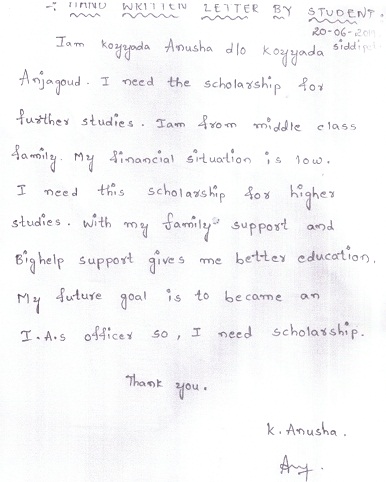 -: HAND WRITTEN LETTER BY STUDENT.
20-06-20
Iam koyyada Anusha d/o koyyada
Anjagoud. I need the scholarship for
further studies. Iam from middle class
family. My financial situation is low.
I need this scholarship for higher
studies. With my family support and
Bighelp support gives me better education.
My future goal is to became an
I.A.s officer so, I need scholarship.
Thank you.
K. Anusha.